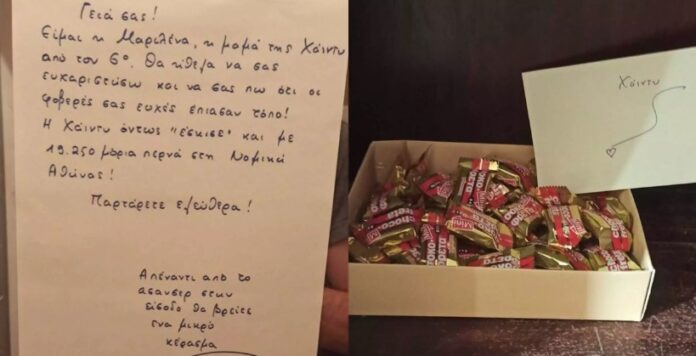 Γειά σας!
Είμαι η Μαριλένα, η μαμά της Χάιντυ
από τον 6º. Θα ήθελα να σας
ευχαριστώσω και να σας πω ότι οι
φοβερές σας ευχές έπιασαν τόπο!
Η Χάιντυ όντως "έσκισε" και με
19.250 μόρια περνά στη Νομική
Αθήνας!
Παρτάρετε ελεύθερα!
Απέναντι από το
ασανσερ στην
είσοδο θα βρείτε
ένα μικρό
κέρασμα
Χάιντυ